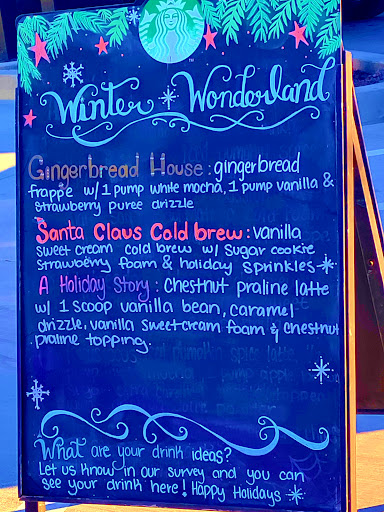 Winter Wonderland
Gingerbread House: gingerbread
frappe w/ 1 pump white mocha, 1 pump vanilla &
strawberry puree drizzle
Santa Claus Cold brew: vanilla
sweet cream cold brew w/ sugar cookie
strawberry foam & holiday sprinkles
A Holiday Story: chestnut praline latte
w/ 1 scoop vanilla bean, caramel
drizzle, vanilla sweet cream foam & chestnut
praline topping.
What are your drink ideas?
Let us know in our survey and you can
see your drink here! Happy Holidays